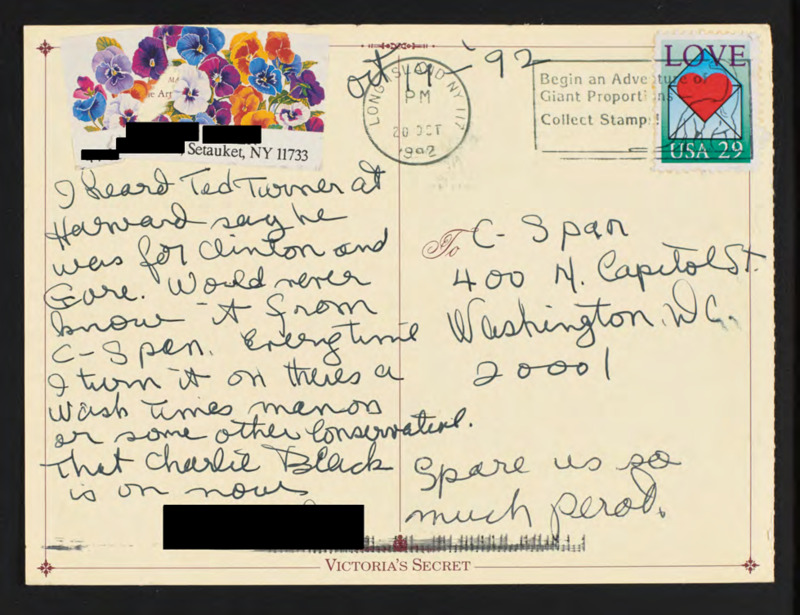 Oct 19 - '92
LONG ISLAND NY 117
PM
20 OCT
1992
Begin an Adventure of
Giant Proportions
Collect Stamps!
LOVE
USA 29
, Setauket, NY 11733
I heard Ted Turner at
Harvard say he
was for Clinton and
Gore. Would never
know it from
C-Span. Every time
I turn it on theres a
Wash Times man on
or some other Conservative.
That Charlie Black
is on now
To C-Span
400 N. Capitol St.
Washington, D.C.
20001
Spare us so
much perot.
VICTORIA'S SECRET